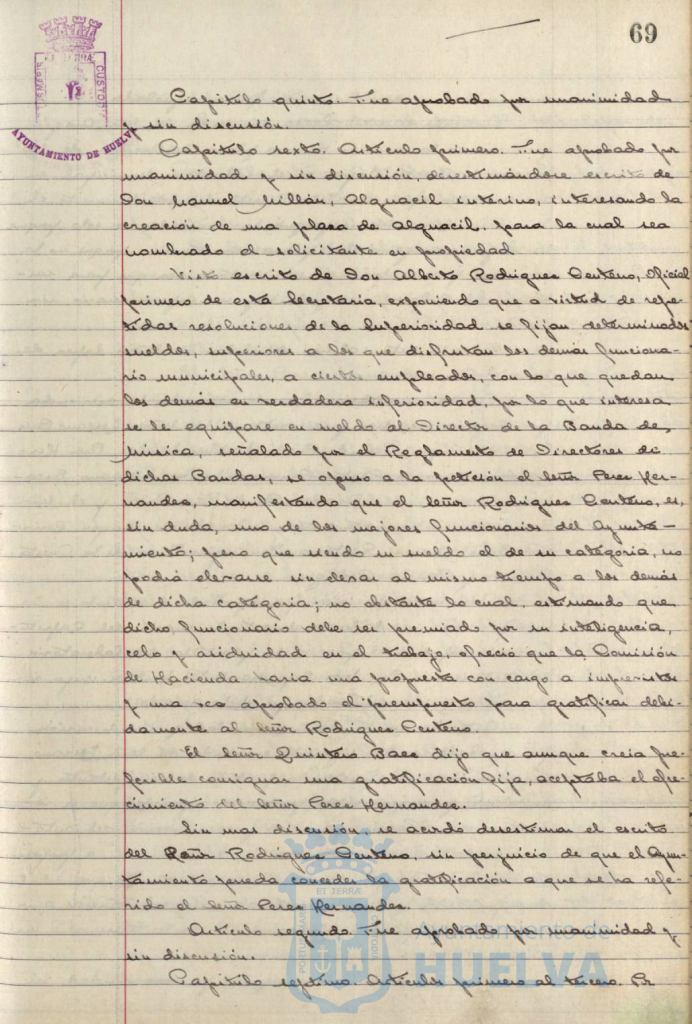 69
AYUNTAMIENTO DE HUELVA
Capitulo quinto. Fue aprobado por unanimidad
y sin discusión.
Capitulo sexto. Articulo primero. Fue aprobado por
unanimidad y sin discusión, desestimándose escrito de
Don Manuel Millán, Alguacil interino, interesando la
creación de una plaza de Alguacil, para la cual sea
nombrado el solicitante en propiedad
Visto escrito de Don Alberto Rodriguez Centeno, Oficial
primero de esta Secretaria, exponiendo que a virtud de repe-
tidas resoluciones de la Superioridad se fijan determinados
sueldos, superiores a los que disfrutan los demás funciona-
rio municipales, a ciertos empleados, con lo que quedan
los demás en verdadera inferioridad, por lo que interesa
se le equipare en sueldo al Director de la Banda de
Música, señalado por el Reglamento de Directores de
dichas Bandas, se opuso a la petición el señor Perez Her-
nandez, manifestando que el señor Rodriguez Centeno, es,
sin duda, uno de los mejores funcionarios del Ayunta-
miento; pero que siendo su sueldo el de su categoria, no
podrá elevarse sin elevar al mismo tiempo a los demás
de dicha categoria; no obstante lo cual, estimando que
dicho funcionario debe ser premiado por su inteligencia,
celo y asiduidad en el trabajo, ofreció que la Comisión
de Hacienda haria una propuesta con cargo a imprevistos
y una vez aprobado el presupuesto para gratificar debi-
damente al señor Rodriguez Centeno.
El señor Quintero Baez dijo que aunque creia pre-
ferible consignar una gratificación fija, aceptaba el ofre-
cimiento del señor Perez Hernandez.
Sin mas discusión, se acordó desestimar el escrito
del señor Rodriguez Centeno, sin perjuicio de que el Ayun-
tamiento pueda conceder la gratificación a que se ha refe-
rido el señor Perez Hernandez.
Articulo segundo. Fue aprobado por unanimidad y
sin discusión.
Capitulo septimo. Articulos primero al tercero.
Ayuntamiento de
HUELVA